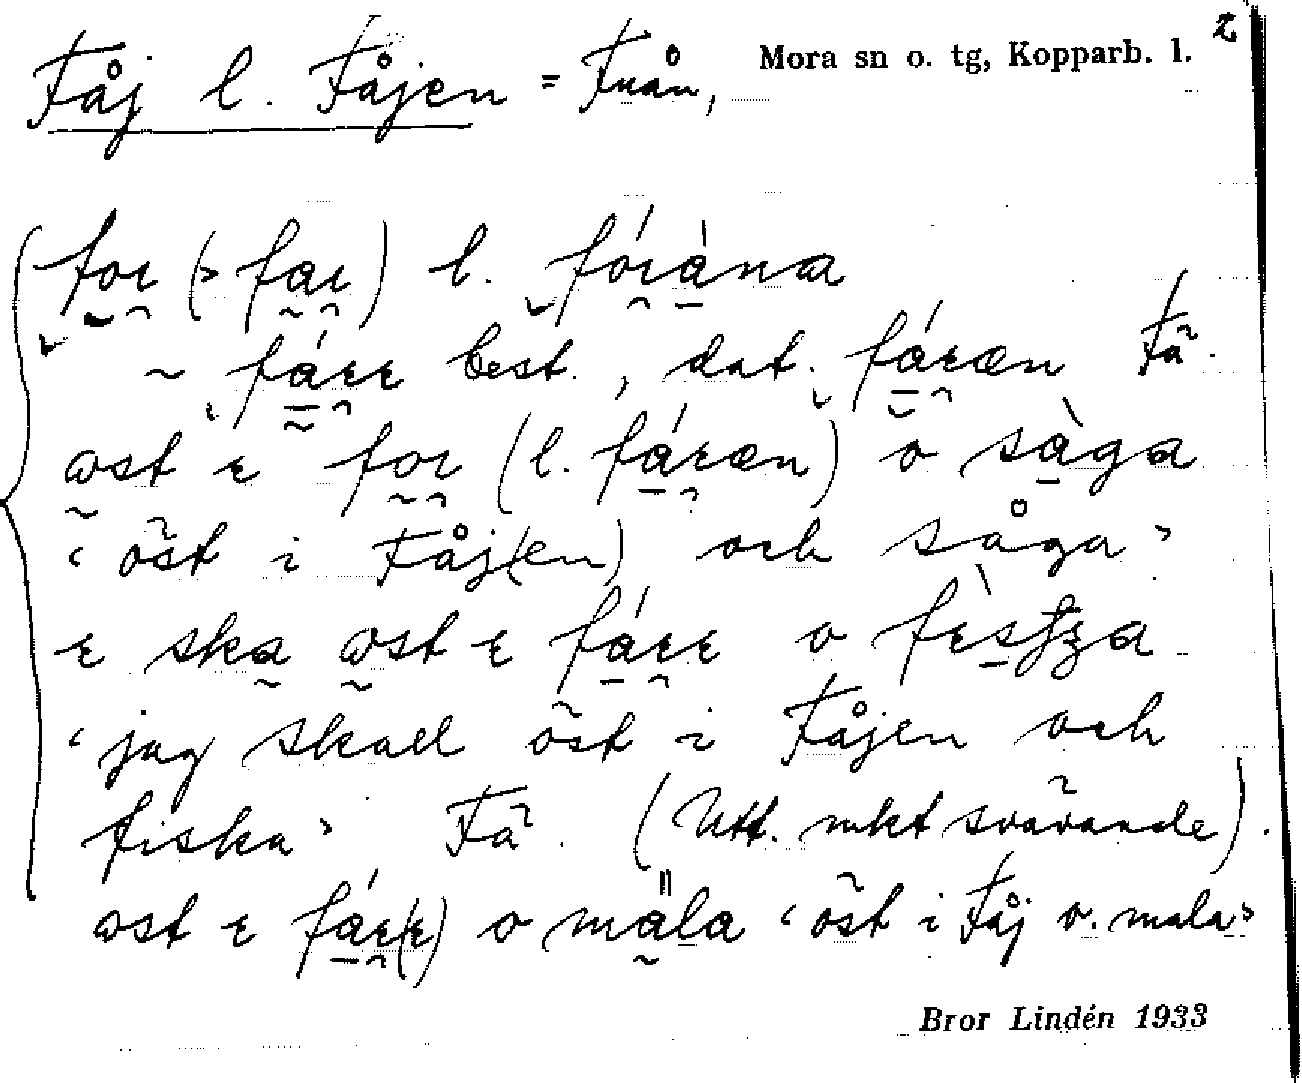 Fåj l. Fåjen = Fuån, Mora sn o. tg, Kopparb. l. 2
for (> far) l. fóràna
~ fáɛɛ best., dat. fáɛæn Få.
ωst ɛ for (l. fáɛæn) o sàga
‘öst i Fåj(en) och såga’
ɛ ska ωst ɛ fáɛɛ o
‘jag skall öst i Fåjen och
fiska’ Få. (Utt. mkt svävande).
ωst ɛ fáɛ(ɛ) o mala ‘öst i Fåj o. mala’
Bror Lindén 1933